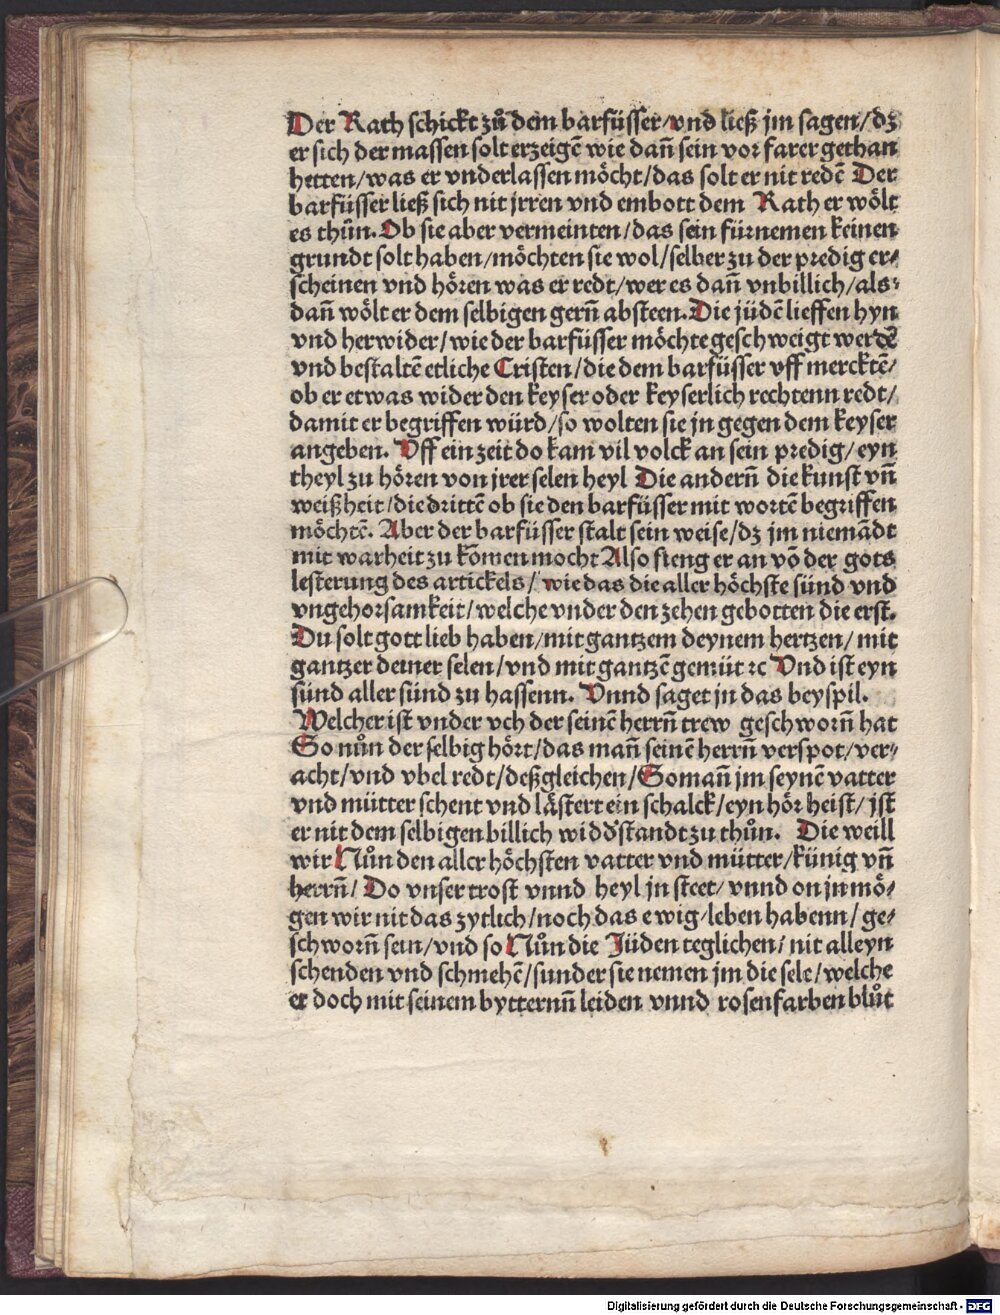 Der Rath schickt zů dem barfüsser/vnd ließ jm sagen/dz
er sich der massen solt erzeigē wie dañ sein vor farer gethan
hetten/was er vnderlassen möcht/das solt er nit redē Der
barfüsser ließ sich nit jrren vnd embott dem Rath er wölt
es thůn. Ob sie aber vermeinten/das sein fürnemen keinen
grundt solt haben/möchten sie wol/selber zu der predig er⸗
scheinen vnd hören was er redt/wer es dañ vnbillich/als⸗
dañ wölt er dem selbigen gerñ absteen. Die jüdē lieffen hyn
vnd herwider/wie der barfüsser möchte geschweigt werdē
vnd bestaltē etliche Cristen/die dem barfüsser vff mercktē/
ob er etwas wider den keyser oder keyserlich rechtenn redt/
damit er begriffen würd/so wolten sie jn gegen dem keyser
angeben. Vff ein zeit do kam vil volck an sein predig/eyn
theyl zu hören von jrer selen heyl Die anderñ die kunst vñ
weißheit/die drittē ob sie den barfüsser mit wortē begriffen
möchtē. Aber der barfüsser stalt sein weise/dz jm niemādt
mit warheit zu kōmen mocht Also fieng er an vō der gots
lesterung des artickels/wie das die aller höchste sünd vnd
vngehorsamkeit/welche vnder den zehen gebotten die erst.
Du solt gott lieb haben/mit gantzem deynem hertzen/mit
gantzer deiner selen/vnd mit gantzē gemüt ⁊c Vnd ist eyn
sünd aller sünd zu hassenn. Vnnd saget jn das beyspil.
Welcher ist vnder vch der seinē herrñ trew geschworñ hat
So nůn der selbig hört/das mañ seinē herrñ verspot/ver⸗
acht/vnd vbel redt/deßgleichen/So mañ jm seynē vatter
vnd mütter schent vnd lästert ein schalck/eyn hör heist/jst
er nit dem selbigen billich widďstandt zu thůn. Die weill
wir Nůn den aller höchsten vatter vnd mütter/künig vñ
herrñ/Do vnser trost vnnd heyl jn steet/vnnd on jn mö⸗
gen wir nit das zytlich/noch das ewig/leben habenn/ge⸗
schworñ sein/vnd so Nůn die Jüden teglichen/nit alleyn
schenden vnd schmehē/sunder sie nemen jm die sele/welche
er doch mit seinem bytternñ leiden vnnd rosenfarben blůt
Digitalisierung gefördert durch die Deutsche Forschungsgemeinschaft - DFG